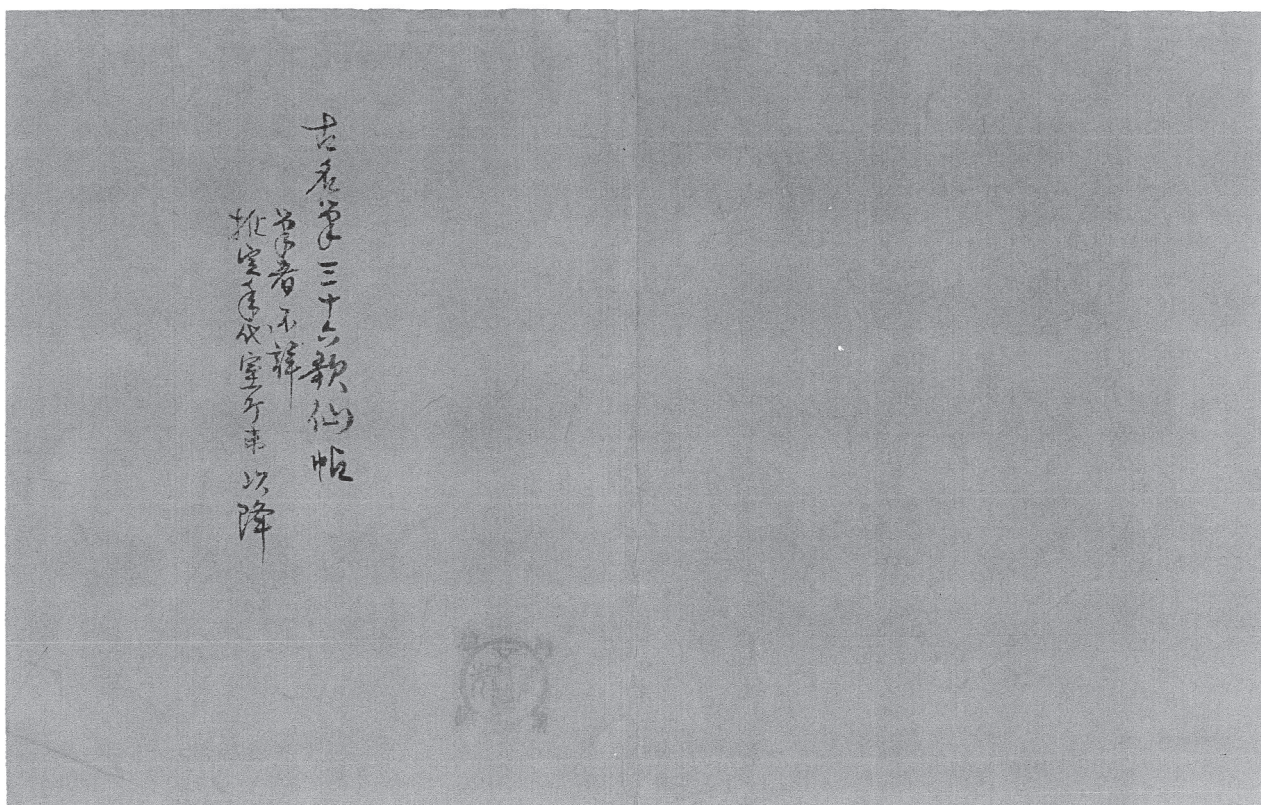 古名筆三十六歌仙帖
筆者不詳
推定年代室町末以降